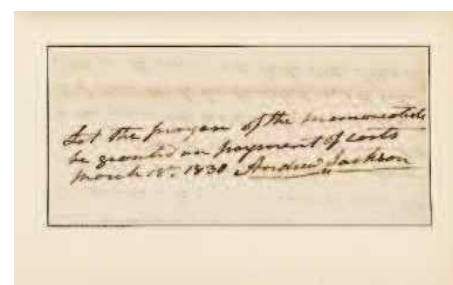 Let the prayer of the memorialists
be granted on payment of costs
March 18th 1830 Andrew Jackson